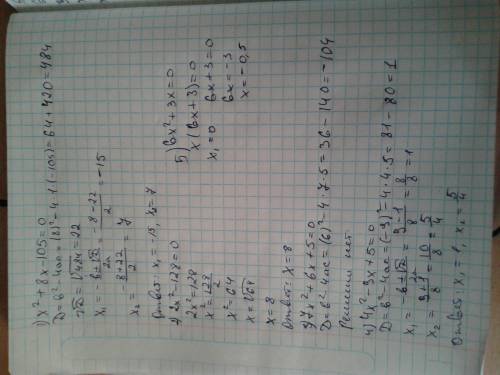 1) x² - 8x - 105 = 0
D = b² - 4ac = (8)² - 4·1·(-105) = 64 + 420 = 484
√D = √484 = 22
x₁ = -b ± √D / 2a = -8-22 / 2 = -15
x₂ = 8+22 / 2 = 7
Ответ: x₁ = -15, x₂ = 7
2) 2x² - 128 = 0
2x² = 128
x² = 128/2
x² = 64
x = √64
x = 8
Ответ: x = 8
3) 7x² + 6x + 5 = 0
D = b² - 4ac = (6)² - 4·7·5 = 36 - 140 = -104
Решений нет
4) 4x² - 9x + 5 = 0
D = b² - 4ac = (-9)² - 4·4·5 = 81 - 80 = 1
x₁ = -b ± √D / 2a = 9-1 / 8 = 8/8 = 1
x₂ = 9+1 / 8 = 10/8 = 5/4
Ответ: x₁ = 1, x₂ = 5/4
5) 6x² + 3x = 0
x(6x + 3) = 0
x₁ = 0 6x + 3 = 0
6x = -3
x = -0,5